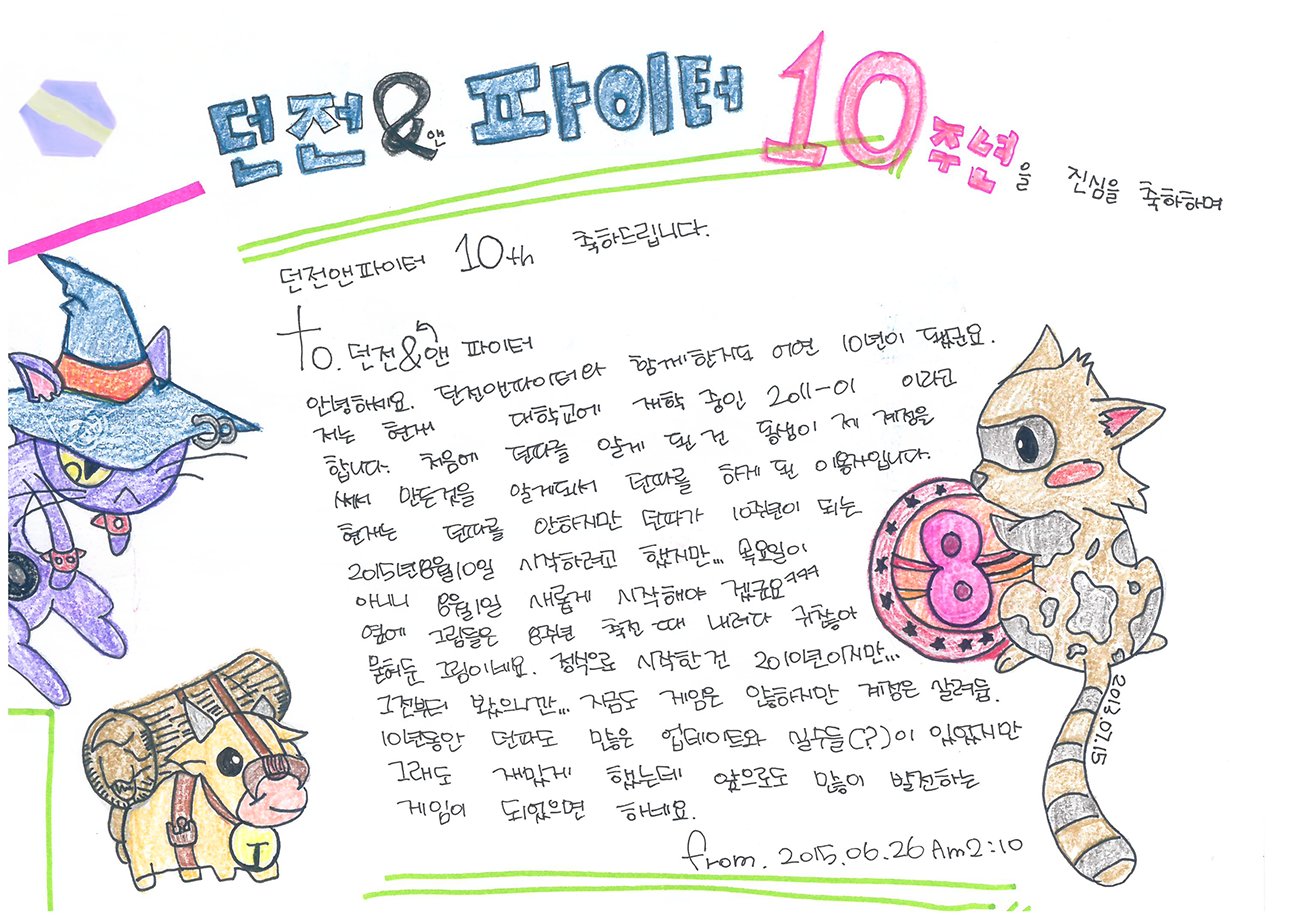 던전&앤 파이터 10주년을 진심을 축하하며
던전앤파이터 10th 축하드립니다.
to. 던전&앤 파이터
안녕하세요. 던전앤파이터와 함께한지도 어연 10년이 됐군요.
저는 현재 대학교에 재학 중인 2011-01 이라고
합니다. 처음에 던파를 알게 된 건 동생이 제 계정을
써서 만든것을 알게되서 던파를 하게 된 이용자입니다.
현재는 던파를 안하지만 던파가 10주년이 되는
2015년8월10일 시작하려고 했지만... 목요일이
아니니 8월1일 새롭게 시작해야 겠군요ㅋㅋㅋ
옆에 그림들은 8주년 축전 때 내려다 귀찮아
묻혀둔 그림이네요. 정식으로 시작한건 2011년이지만...
그전부터 봤으니깐... 지금도 게임은 않하지만 계정은 살려둠.
10년동안 던파도 많은 업데이트와 실수들(?)이 있었지만
그래도 재밌게 했는데 앞으로도 많이 발전하는
게임이 되었으면 하네요.
from. 2015.06.26 Am2:10
8
2013.07.15
T